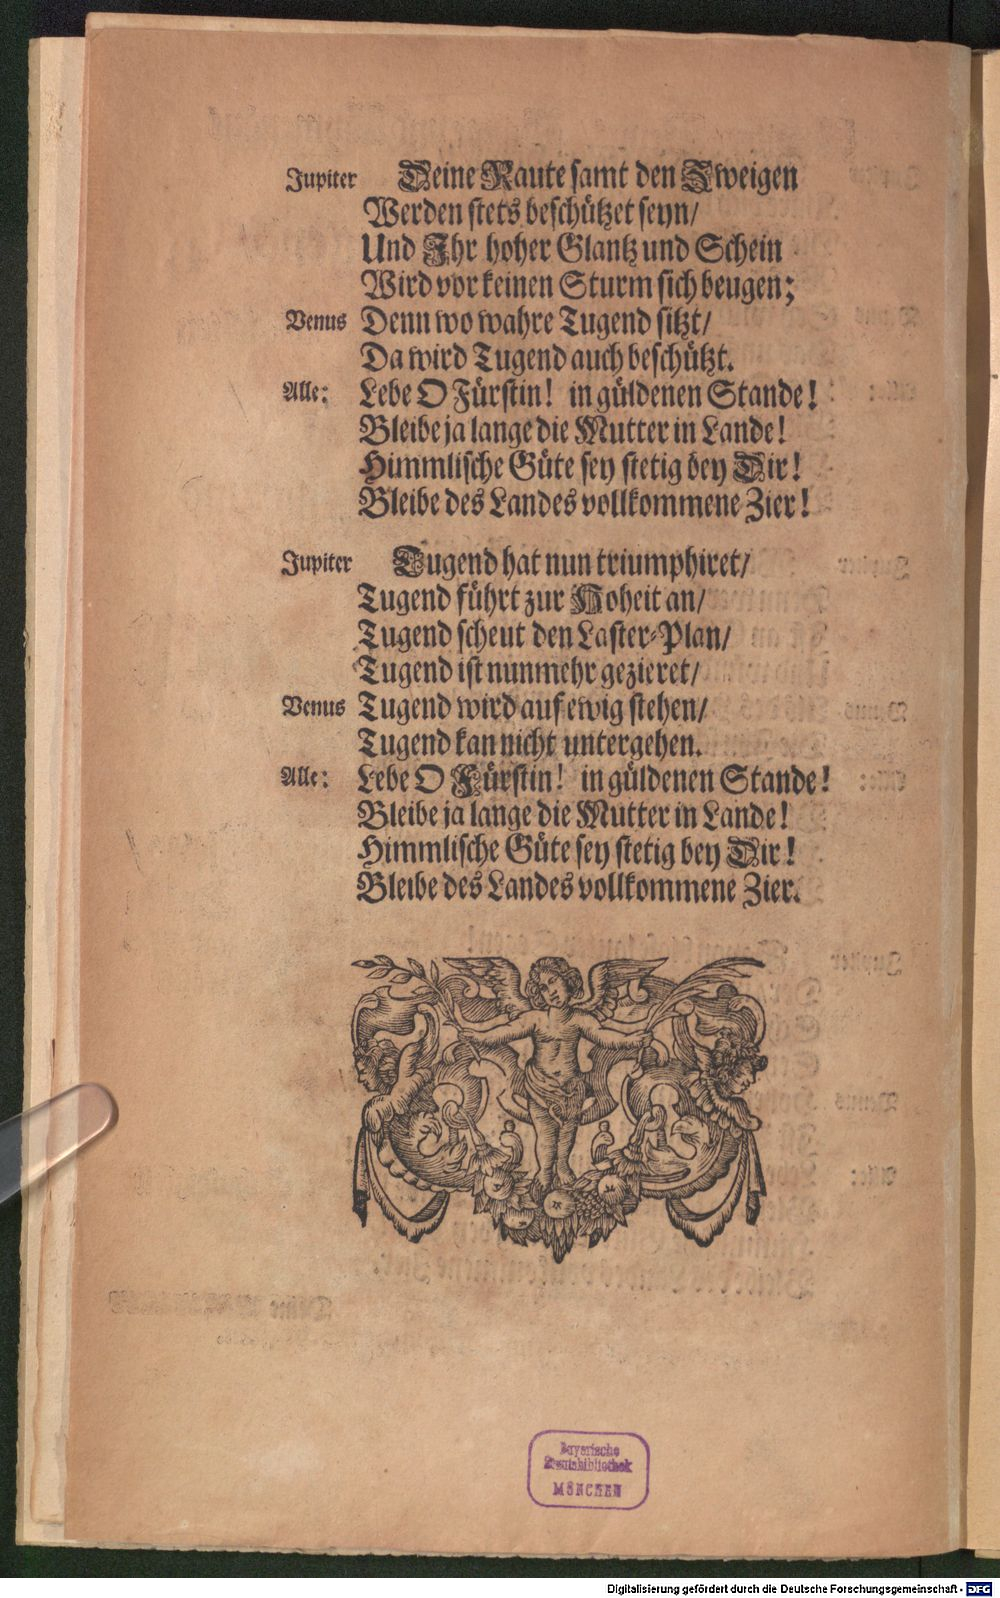 Jupiter Deine Raute samt den Zweigen
Werden stets beschützet seyn/
Und Ihr hoher Glantz und Schein
Wird vor keinen Sturm sich beugen;
Venus Denn wo wahre Tugend sitzt/
Da wird Tugend auch beschützt.
Alle: Lebe O Fürstin! in güldenen Stande!
Bleibe ja lange die Mutter in Lande!
Himmlische Güte sey stetig bey Dir!
Bleibe des Landes vollkommene Zier!
Jupiter Tugend hat nun triumphiret/
Tugend führt zur Hoheit an/
Tugend scheut den Laster-Plan/
Tugend ist nunmehr gezieret/
Venus Tugend wird auf ewig stehen/
Tugend kan nicht untergehen.
Alle: Lebe O Fürstin! in güldenen Stande!
Bleibe ja lange die Mutter in Lande!
Himmlische Güte sey stetig bey Dir!
Bleibe des Landes vollkommene Zier.
Bayerische
Staatsbibliothek
MÜNCHEN
Digitalisierung gefördert durch die Deutsche Forschungsgemeinschaft - DFG